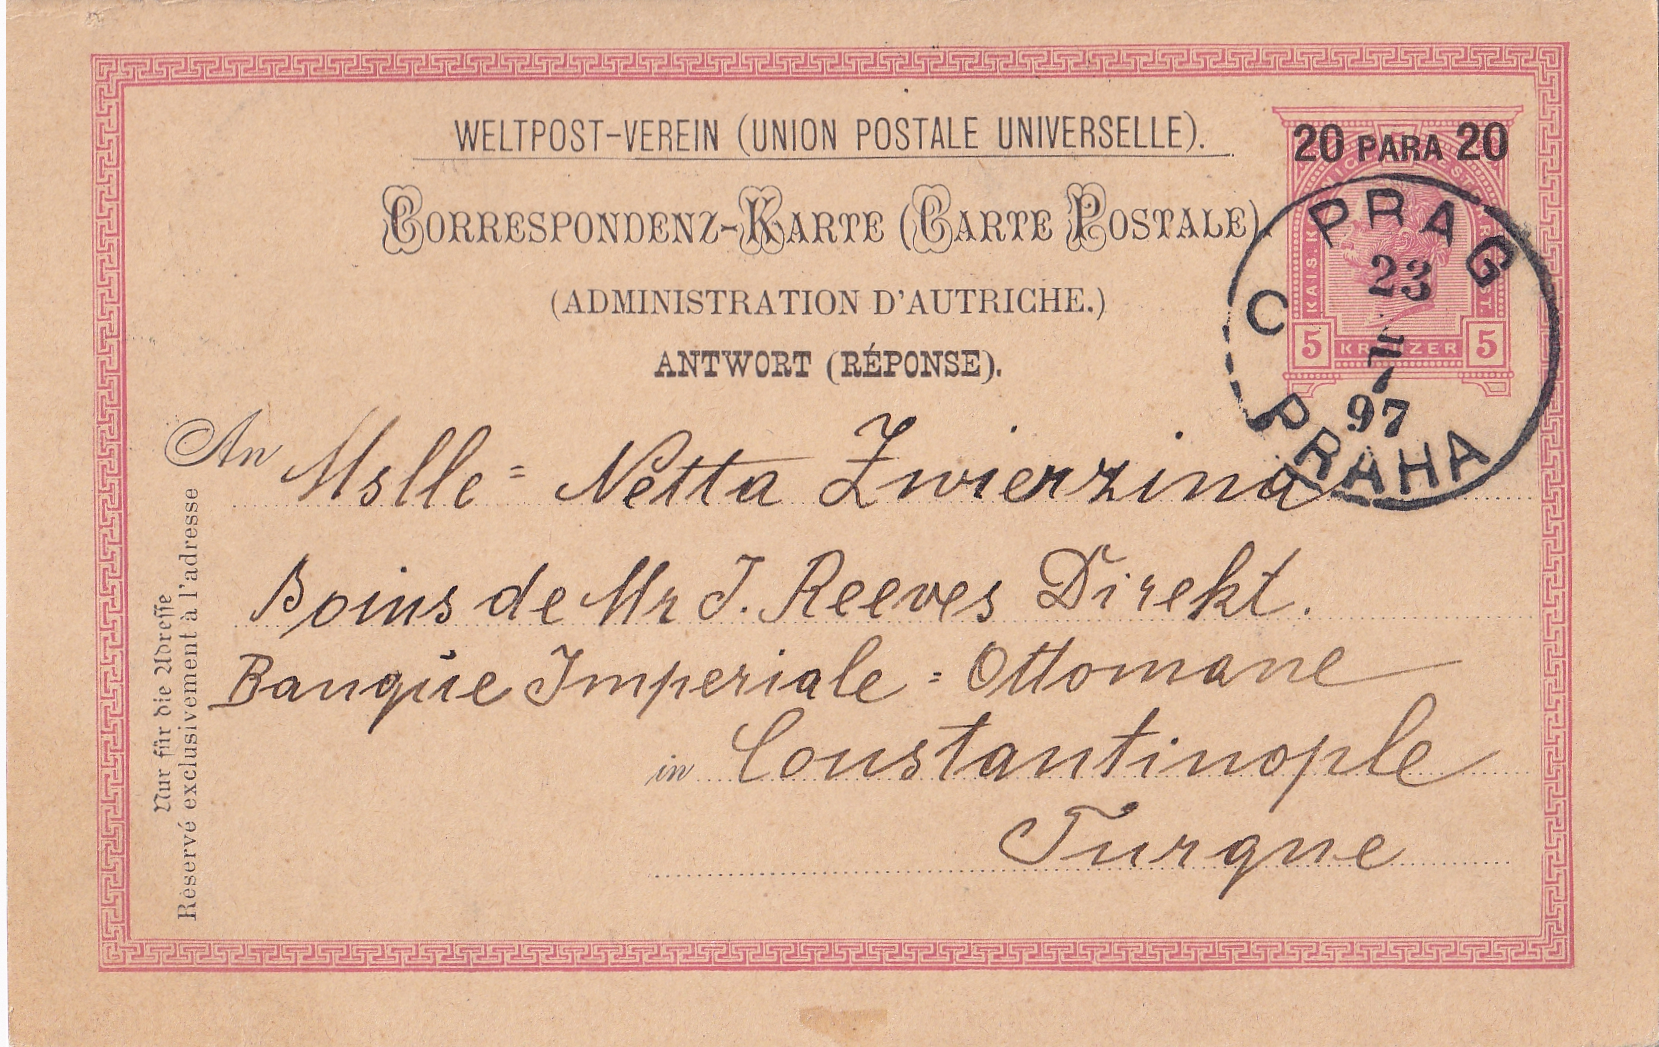 WELTPOST-VEREIN (UNION POSTALE UNIVERSELLE).
20 PARA 20
CORRESPONDENZ-KARTE (CARTE POSTALE).
(ADMINISTRATION D'AUTRICHE.)
ANTWORT (RÉPONSE).
5 KREUZER 5
PRAG
C
23
97
PRAHA
An Mslle = Netta Zwierzina
Boins de Mr J. Reeves Direkt.
Banque Imperiale = Ottomane
in Constantinople
Turque
Nur für die Adresse
Réservé exclusivement à l'adresse